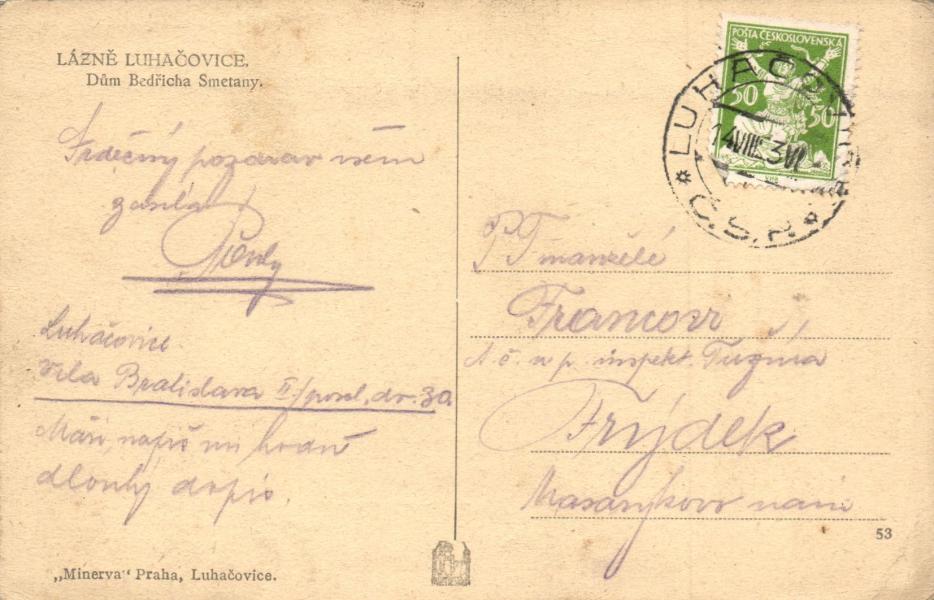 LÁZNĚ LUHAČOVICE.
Dům Bedřicha Smetany.
Srdečný pozdrav všem
zasílá
Luhačovice.
Vila Bratislava II/posch. dv. 30.
Máři, napiš mi hodně
dlouhý dopis.
„Minerva“ Praha, Luhačovice.
POŠTA ČESKOSLOVENSKÁ
50 50
LUHAČOVICE
14 VIII
Č.S.R.
PT manželé
Francovi
inspekt.
Frýdek
Masarykovo nám
53